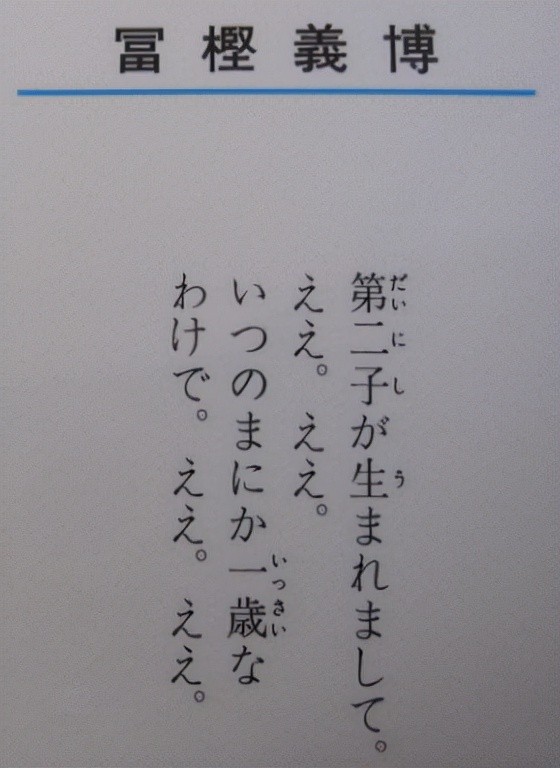 冨樫義博
第二子が生まれまして。
ええ。ええ。
いつのまにか一歳な
わけで。ええ。ええ。